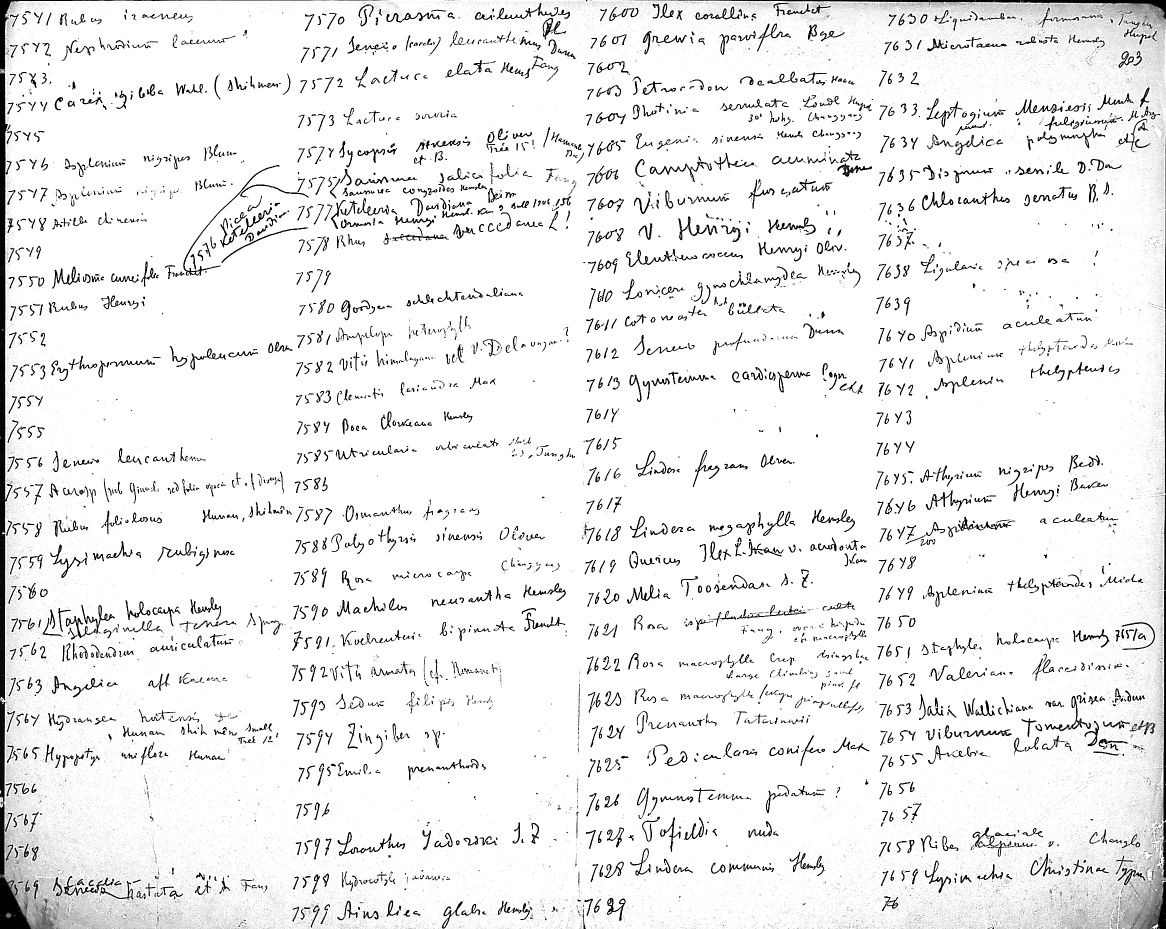 7541 Rubus
7542 Nephrodium
7543.
7544 Carex gibba Wahl. (Shihmen)
7545
7546 Asplenium nigripes Blum.
7547 Asplenium nigripes Blum.
7548 Atriplex chinensis
7549
7550 Meliosma cuneifolia Franchet.
7551 Rubus Henryi
7552
7553 Erythropsermum hypoleucum Oliv.
7554
7555
7556 Senecio leucanthemus
7557
7558 Rubus foliolosus Hunan, Shihmen
7559 Lysimachia rubiginosa
7560
7561 Staphylea holocarpa Hemsley
Selaginella
7562 Rhododendron auriculatum
7563 Angelica aff
7564 Hydrangea
Hunan Shihmen Small Tree 12'
7565 Hypopitys uniflora Hunan
7566
7567
7568
7569 Senecio Cacalia hastata Fang
7570 Picrasma ailanthoides
7571 Senecio (Cacalia) leucanthemus Dunn Fang
7572 Lactuca elata Hemsl
7573 Lactuca
7574 Sycopsis sinensis Oliver
et B. Tree 15!
7575 Saussurea salicifolia Fang
Saussurea conyzoides Hemsley
7576 Picea
Keteleeria
Davidiana
7577 Keteleeria Davidiana Beissn
Ormosia Henryi Hemsl.
7578 Rhus succedanea L!
7579
7580 Goodyera schlechtendaliana
7581 Ampelopsis heterophylla
7582 Vitis himalayana vel V. Delavayana?
7583 Clematis lasiandra Max
7584 Boea Clarkeana Hemsley
7585 Utricularia orbiculata
7586
7587 Osmanthus fragrans
7588 Poliothyrsis sinensis Oliver
7589 Rosa microcarpa Changyang
7590 Machilus neurantha Hemsley
7591. Koelreuteria bipinnata Franchet.
7592 Vitis armata (cf. Romaneti)
7593 Sedum filipes Hemsley
7594 Zingiber sp.
7595 Emilia prenanthoidea
7596
7597 Loranthus Yadoriki S. Z
7598 Hydrocotyle javanica
7599 Ainsliea glabra Hemsley
7600 Ilex corallina Franchet
7601 Grewia parviflora Bge
7602
7603 Petrocodon dealbatus Hance
7604 Photinia serrulata Lindl Hupeh
30' high. Changyang
7605 Eugenia sinensis Hemsl Changyang
7606 Camptotheca acuminata Dcne
7607 Viburnum furcatum
7608 V. Henryi Hemsley
7609 Eleutherococcus Henryi Oliv.
7610 Lonicera gynochlamydea Hemsley
7611 Cotoneaster bullata
7612 Senecio profundorum Dunn
7613 Gynostemma cardiosperma Cogn
7614
7615
7616 Lindera fragrans Oliver.
7617
7618 Lindera megaphylla Hemsley
7619 Quercus Ilex L. v. acrodonta Skan
7620 Melia Toosendan S. Z.
7621 Rosa
7622 Rosa macrophylla Crep Hsingshan
Large climbing shrub
pink fl
7623 Rosa macrophylla
7624 Prenanthes Tatarinowii
7625 Pedicularis conifera Max
7626 Gymnostemma pedatum?
7627. Tofieldia nuda
7628 Lindera communis Hemsley
7629
7630 Liquidambar formosana, Tunghu Hupeh
7631 Microtoena robusta Hemsley
903
7632
7633. Leptogium Menziesii Mont f.
fuliginosum
7634 Angelica polymorpha etc (A
7635 Disporum sessile D. Don
7636 Chloranthus serratus R. S.
7637.
7638 Ligularia speciosa !
7639
7640 Aspidium aculeatum
7641 Asplenium thelypteroides Michx
7642. Asplenium thelypteroides
7643
7644
7645. Athyrium nigripes Bedd.
7646 Athyrium Henryi Baker
7647 Aspidium aculeatum
7648
7649 Asplenium thelypteroides Michx
7650
7651 Staphylea holocarpa Hemsley 7561a
7652 Valeriana flaccidissima.
7653 Salix Wallichiana var. grisea Anders
7654 Viburnum Tomentosum et B
7655 Akebia lobata Don.
7656
7657
7658 Ribes glaciale alpinum v. Changlo
7659 Lysimachia Christinae Type
76